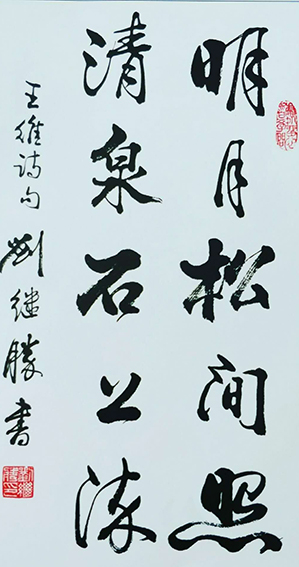 明月松间照
清泉石上流
王維诗句 劉继勝書